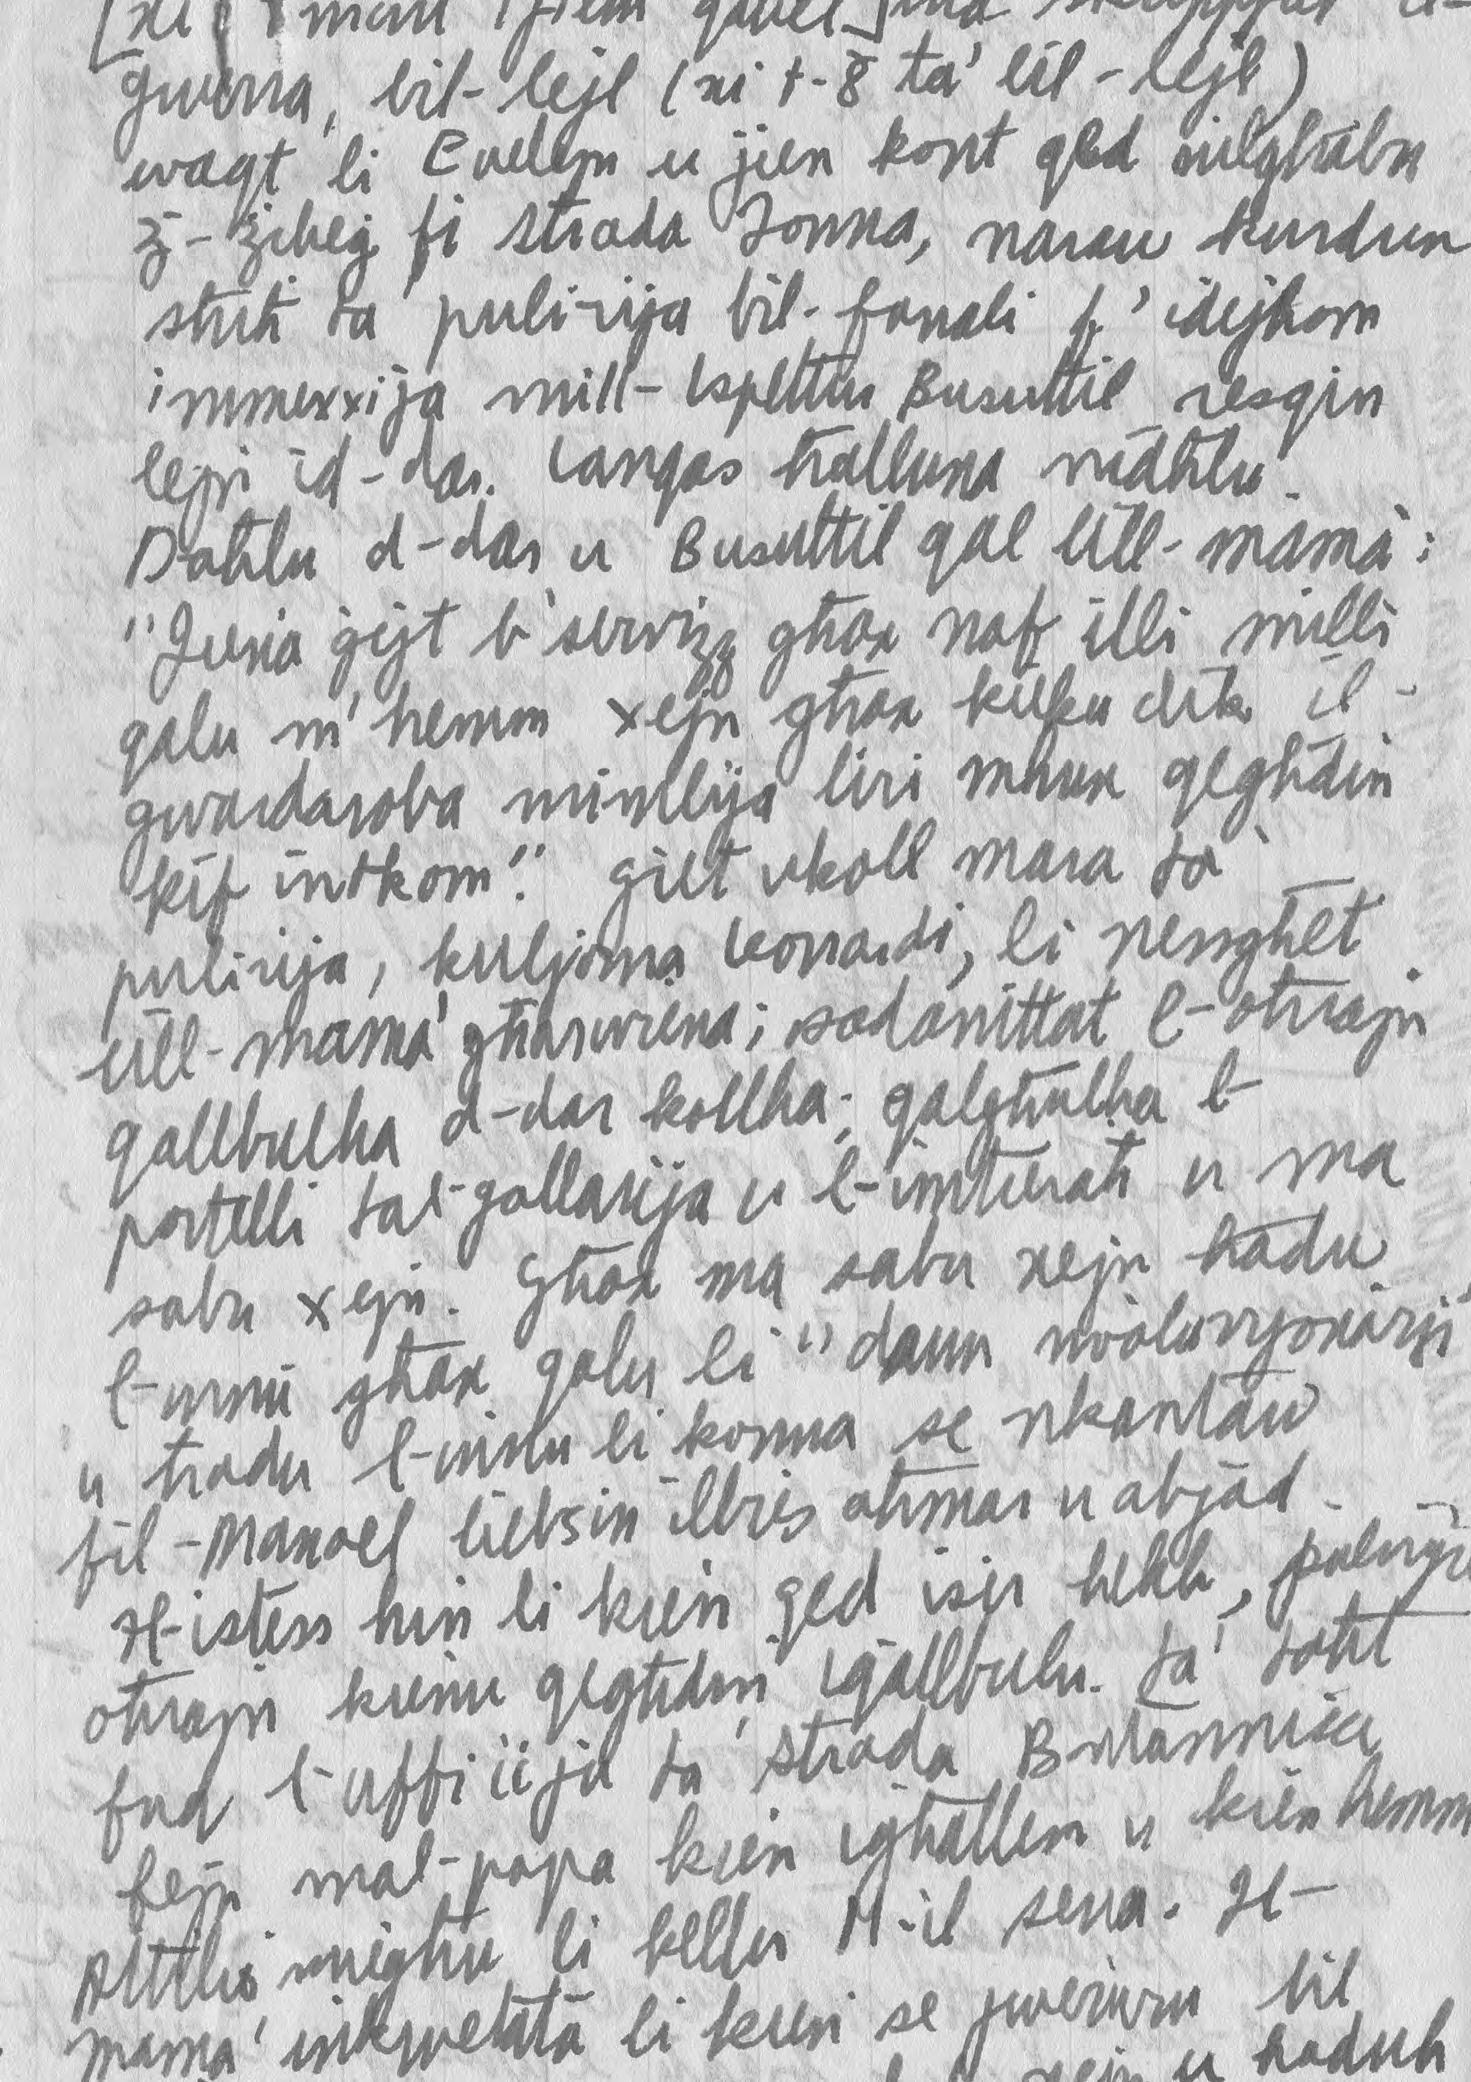 gwerra, bil-lejl (xi t-8 ta' bil-lejl)
waqt li Evelyn u jien kont qed nilgħabu
ż-żibeġ fi Strada Zonna, naraw kurdun
sħiħ ta' pulizija bil-fanali f'idejhom
immexxija mill-Ispettur Busuttil resqin
lejn id-dar. Lanqas ħalluna nidħlu.
Daħlu d-dar u Busuttil qal lill-mamà:
"Jiena ġejt b'servizz għax naf illi milli
qalu m'hemm xejn għax kieku dik il-
gwardaroba mimlija liri mhux qegħdin
kif intkom". Ġiet ukoll mara ta'
pulizija, kuljoma Leonardi, li nesgħet
lill-mamà għarwiena; sadanittat l-oħrajn
qallbulha d-dar kollha; qalgħulha l-
portelli tal-gallarija u l-imtieraħ u ma
sabu xejn. Għax ma sabu xejn ħadu
l-innu għax qalu li "daun rivoluzzjonarji"
u ħadu l-innu li konna se nkantaw
fil-Manoel liebsin ilbies aħmar u abjad.
Il-istess ħin li kien qed isir hekk, pulizija
oħrajn kienu qegħdin iqallbulu ta' taħt
fuq l-uffiċċju ta' Strada Britannica
fejn mal-papà kien igħallem u kien hemm
Attilio miegħu li kellu 11-il sena. Il-
mamà inkwetata li kien se jweġġgħu bil
xejn u ħaduh